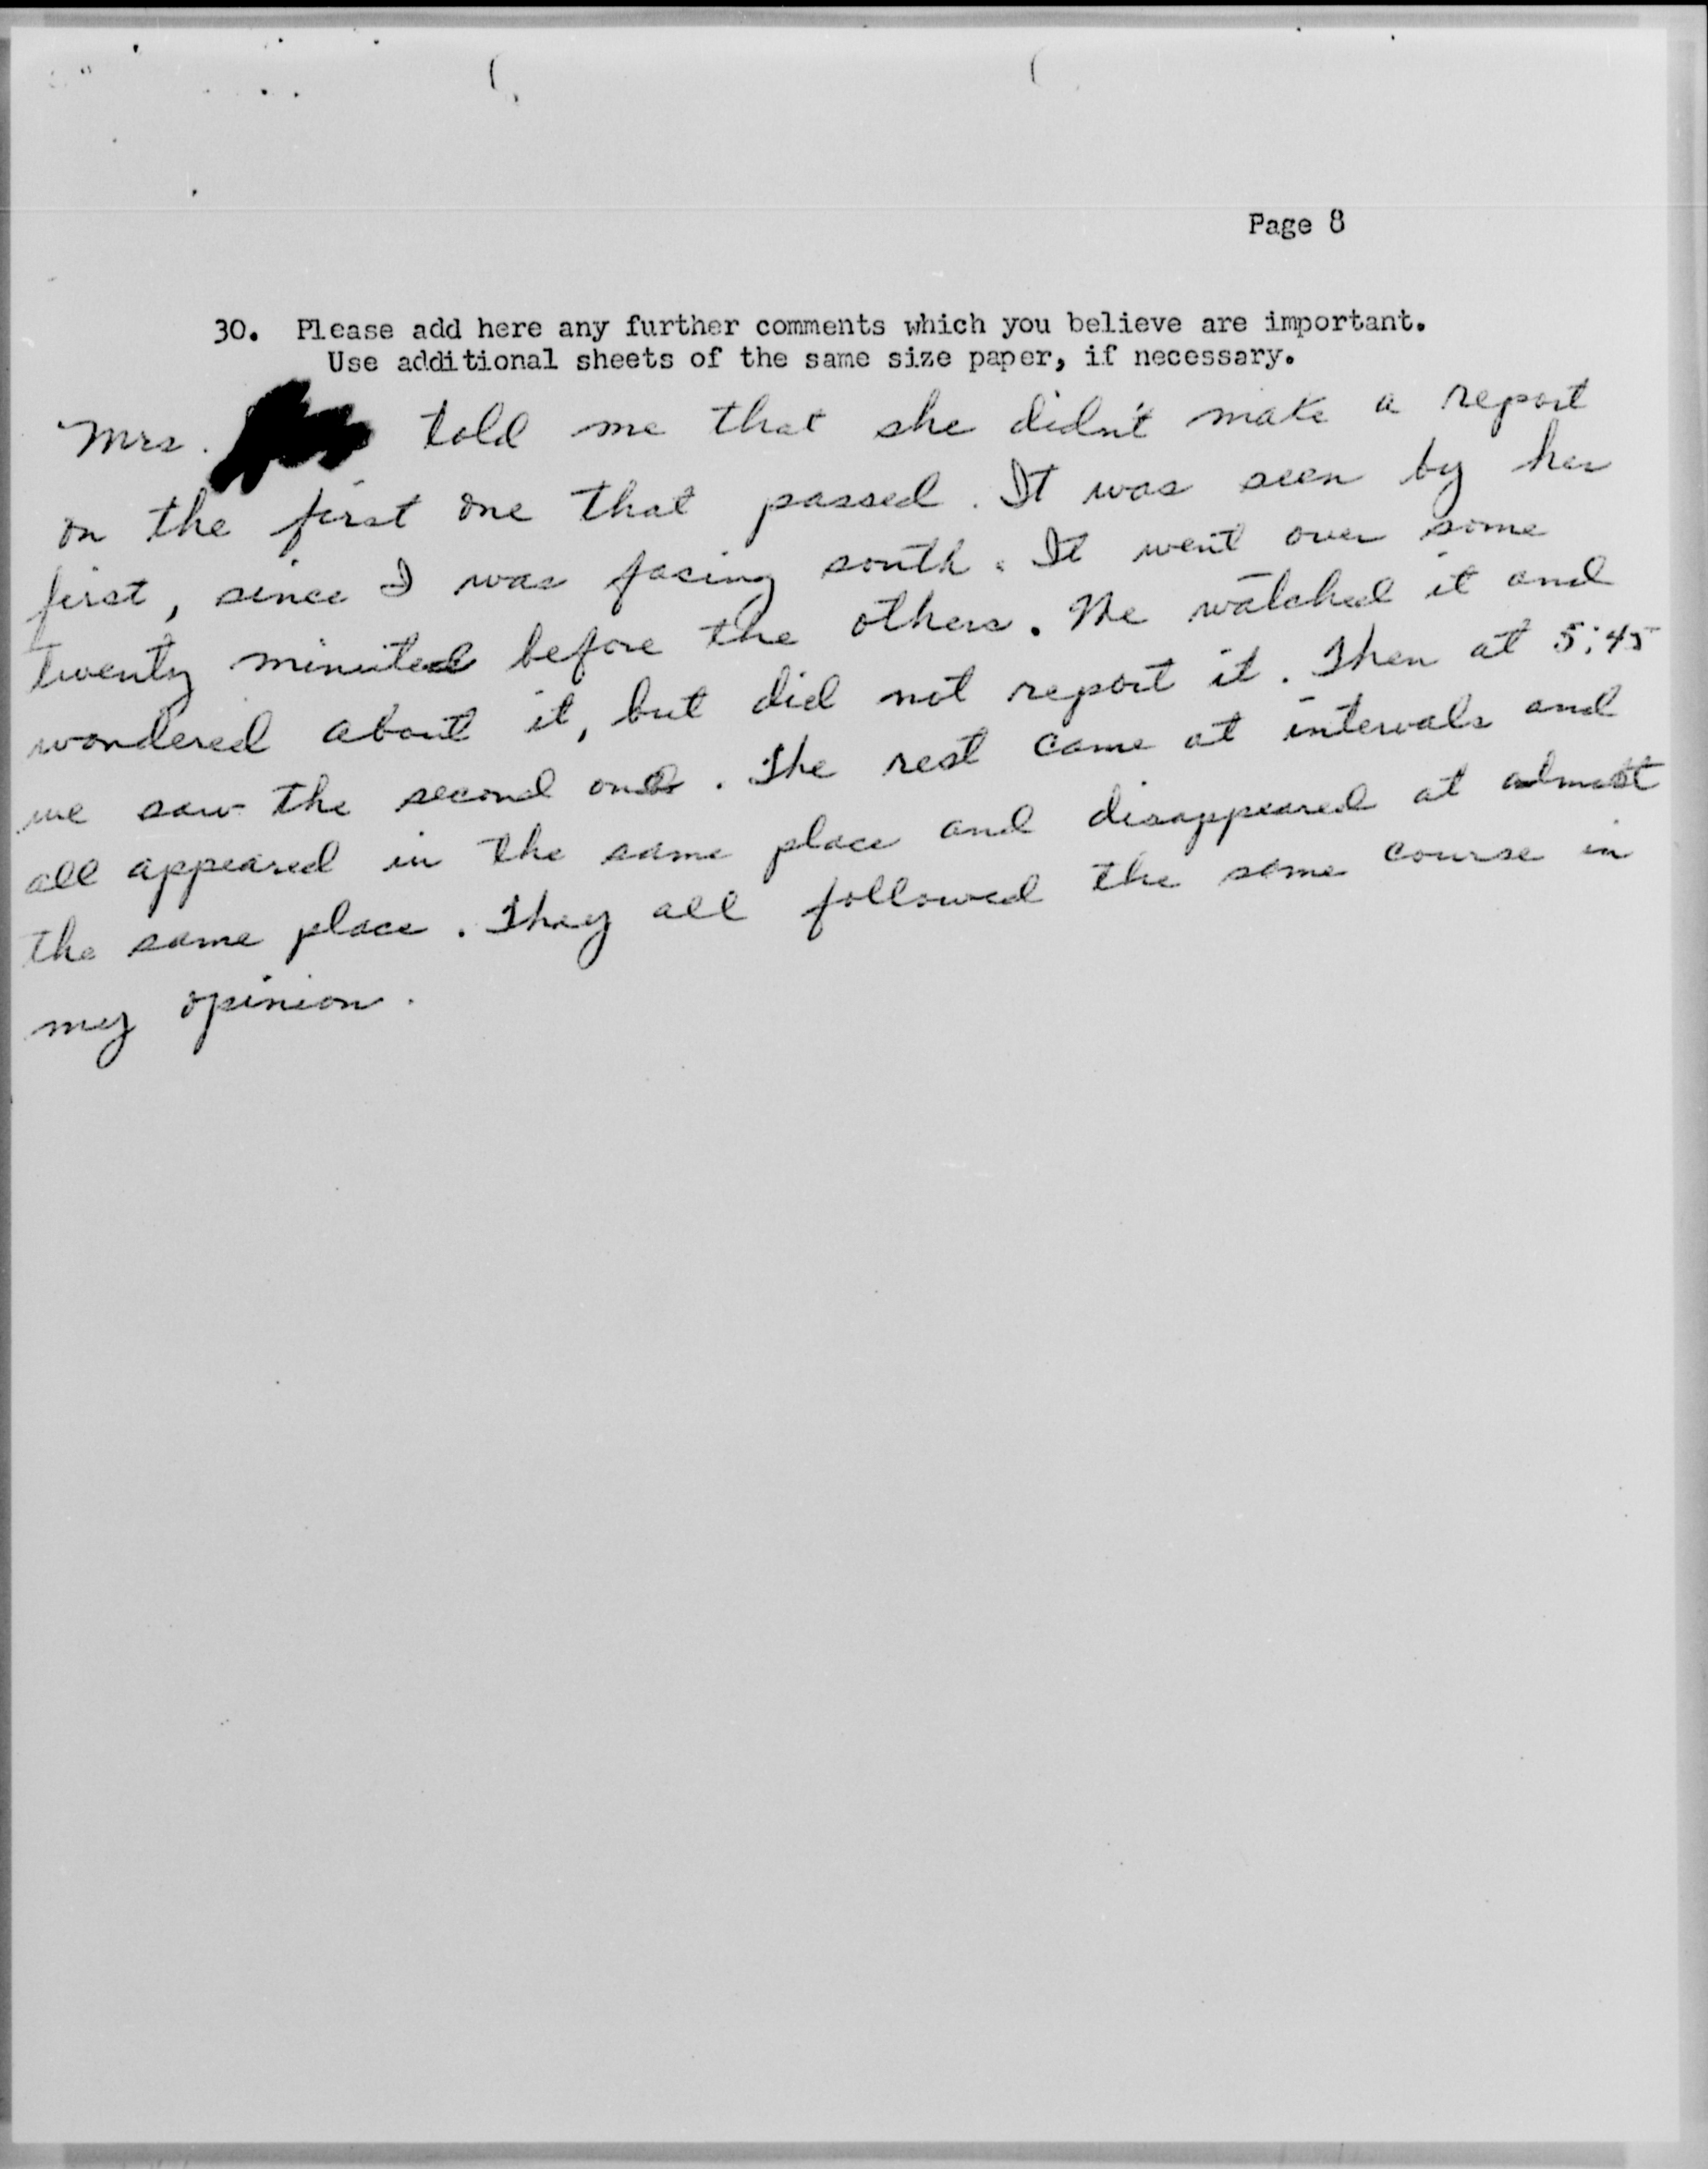 Page 8
30. Please add here any further comments which you believe are important.
Use additional sheets of the same size paper, if necessary.
Mrs. told me that she didn't make a report
on the first one that passed. It was seen by her
first, since I was facing south. It went over some
twenty minutes before the others. We watched it and
wondered about it, but did not report it. Then at 5:45
we saw the second one. The rest came at intervals and
all appeared in the same place and disappeared at almost
the same place. They all followed the same course in
my opinion.